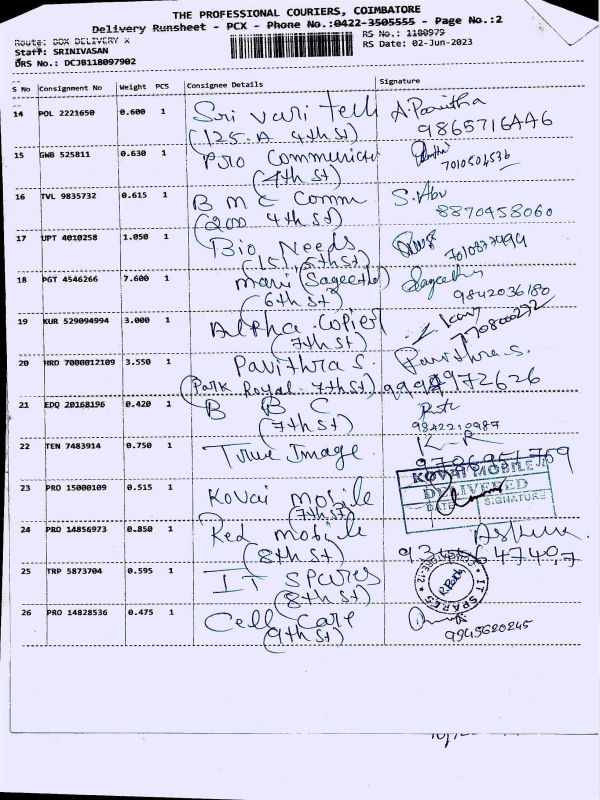 THE PROFESSIONAL COURIERS, COIMBATORE
Delivery Runsheet - PCX - Phone No.:0422-3505555 - Page No.:2
Route: BOX DELIVERY X
RS No.: 1180979
Staff: SRINIVASAN
RS Date: 02-Jun-2023
DRS No.: DCJB118097902
S No Consignment No Weight PCS Consignee Details Signature
14 POL 2221650 0.600 1 Sri Vari Tell A. Pavitha
(125-A 4th St) 9865716446
15 GWB 525811 0.630 1 Pro Communicat
(4th St) 7010504536
16 TVL 9835732 0.615 1 B M C Comm S. Abu
(200 4th St) 8870458060
17 UPT 4010258 1.050 1 Bio Needs
(151, 5th St) 7010877494
18 PGT 4546266 7.600 1 Mani (Sageetha)
(6th St) 9842036180
19 KUR 529094994 3.000 1 Alpha Copier
(7th St) 7708000272
20 HRD 7000012109 3.550 1 Pavithra S. Pavithra.S.
(Park Royal 7th St) 9994972626
21 EDQ 20168196 0.420 1 B B C
(7th St) 9842210987
22 TEN 7483914 0.750 1 True Image
23 PRO 15000109 0.515 1 Kovai Mobile KOVAI MOBILE
(7th St) DELIVERED
DATE SIGNATURE
24 PRO 14856973 0.850 1 Red Mobile
(8th St)
25 TRP 5873704 0.595 1 IT Spares
(8th St) IT SPARES
COIMBATORE-12
26 PRO 14828536 0.475 1 Cell Care
(9th St) 9945620245